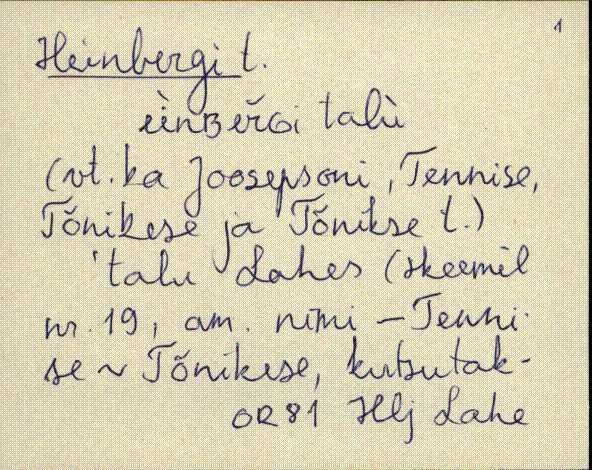 1
Heinbergi t.
èi̮nʙeřɢi talù
(vt. ka Joosepsoni, Tennise,
Tõnikese ja Tõnikse t.)
'talu Lahes (skeemil
nr. 19, am. nimi – Tenni-
se ~ Tõnikese, kutsutak-
OR 81 Hlj Lahe